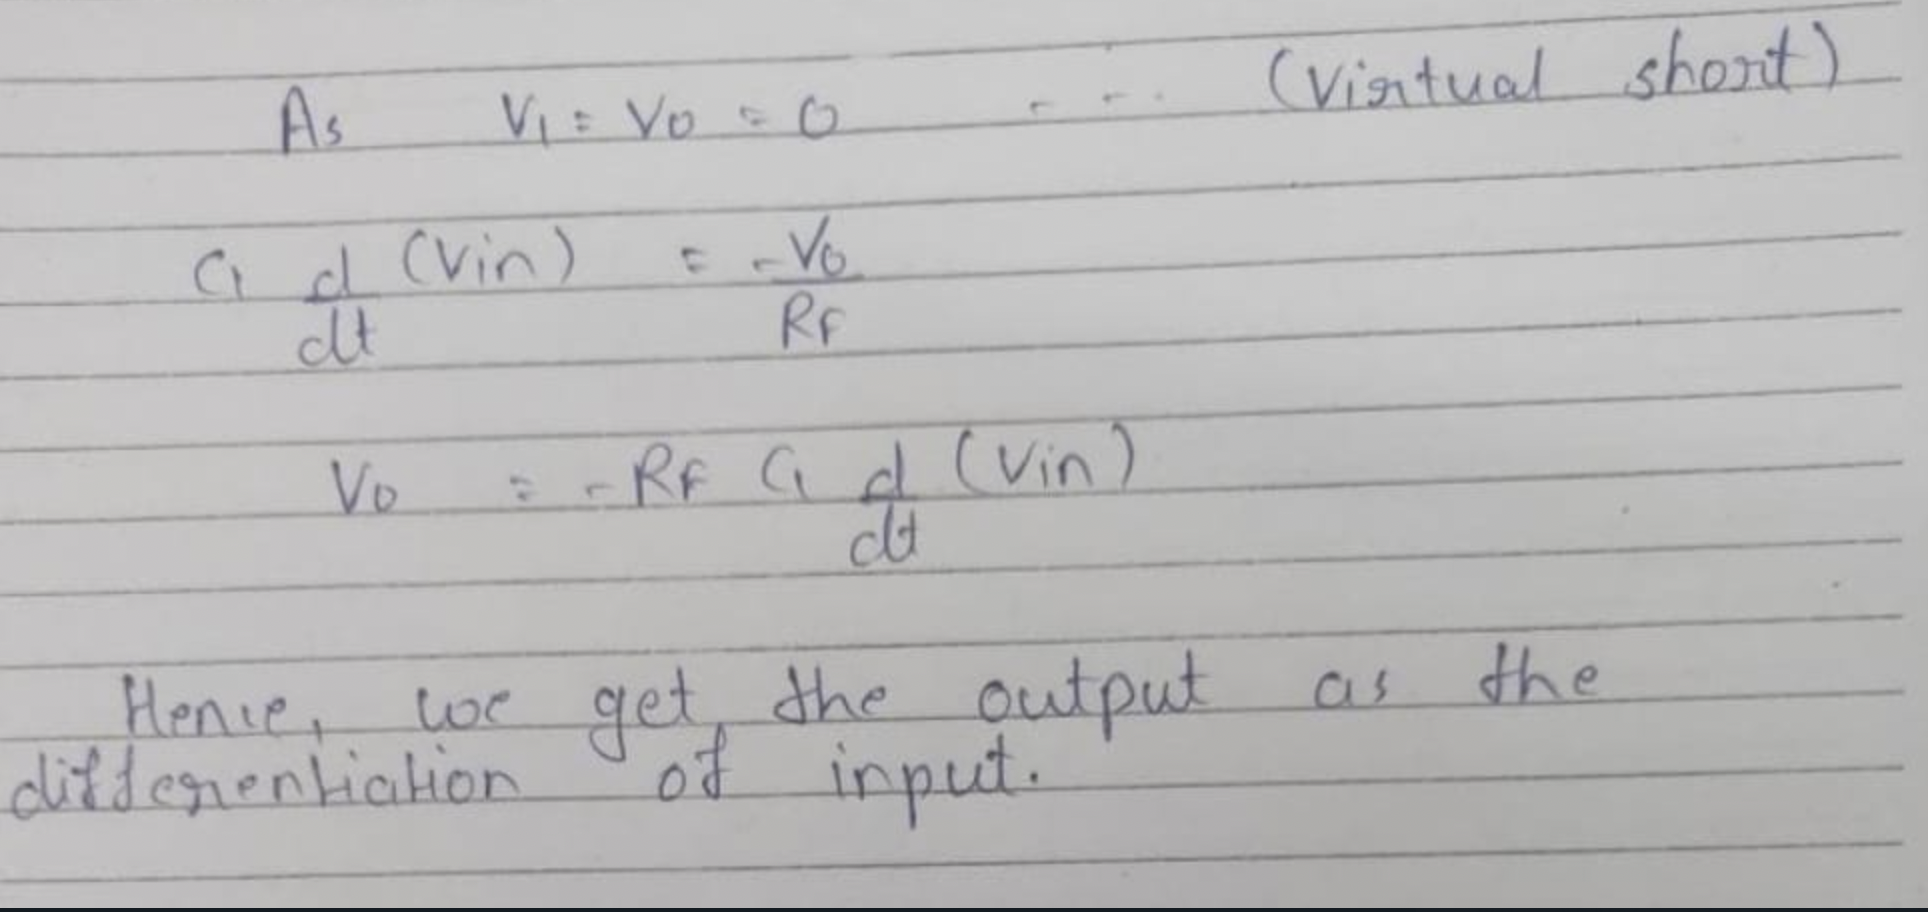 As V1 = Vo = 0 - - - (Virtual short)
C1 d/dt (Vin) = -Vo/RF
Vo = -RF C1 d/dt (Vin)
Hence, we get the output as the
differentiation of input.